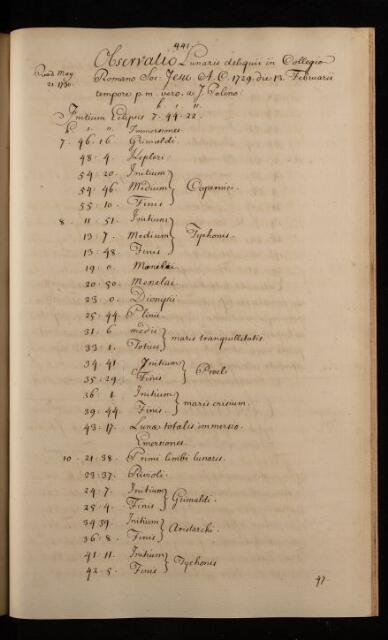 441.
Observatio Lunaris deliquii in Collegio
Read May 21. 1730.
Romano Soc. Jesu. A. C. 1729. die 13. Februarii
tempore p.m. vero. a J. Poleno.
h. ' "
Initium Eclipsis 7. 44. 22.
h. ' " Immersiones.
7. 46. 16. Grimaldi.
48. 4. Kepleri.
54. 20. Initium
54. 46. Medium } Copernici.
55. 10. Finis
8. 11. 51. Initium
13. 7. Medium } Tychonis.
13. 48. Finis
19. 0. Manelai.
20. 50. Menelai.
23. 0. Dionysii
25. 44. Plinii.
31. 6. medii } maris tranquillitatis.
33. 1. Totius
34. 41. Initium } Procli.
35. 29. Finis
36. 1. Initium } maris crisium.
39. 44. Finis.
43. 17. Lunæ totalis immersio.
Emersiones.
10. 21. 38. Primi limbi lunaris.
23. 37. Riccioli.
24. 7. Initium } Grimaldi.
25. 4. Finis
34 39. Initium } Aristarchi.
36. 8. Finis
41. 11. Initium } Tychonis
42. 5. Finis
47.